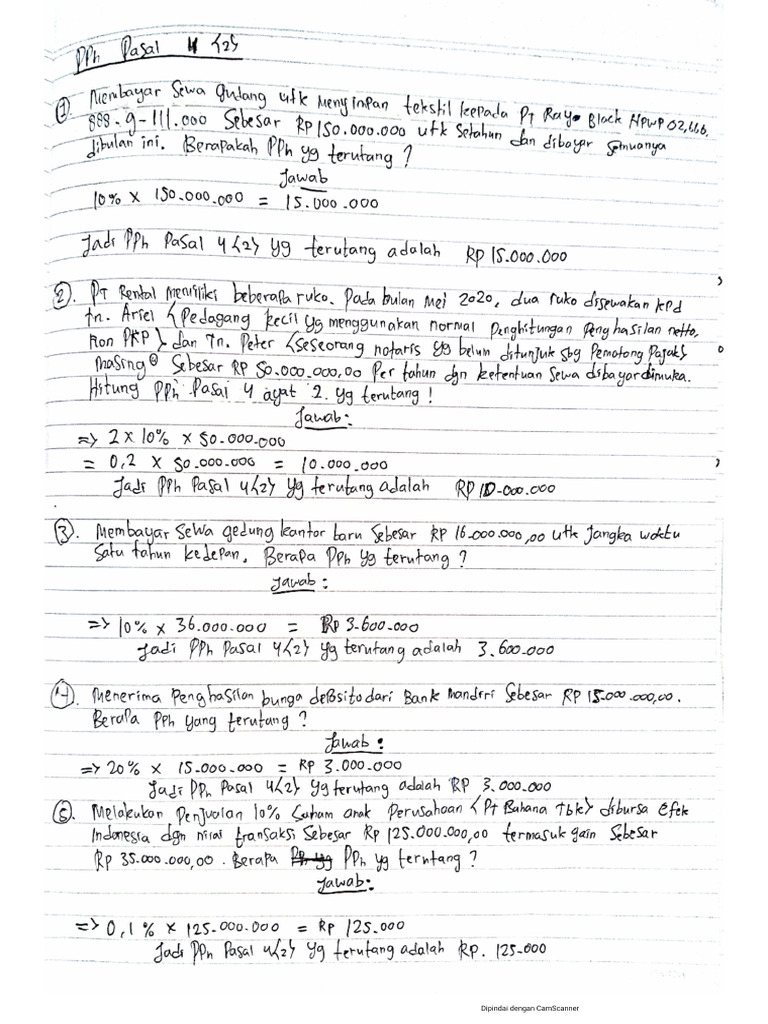 PPh Pasal 4 {2}
① Membayar Sewa gudang utk Menyimpan tekstil kepada PT Ray Black NPWP 02.666.
888-9-111.000 Sebesar RP 150.000.000 utk Setahun dan dibayar Semuanya
dibulan ini. Berapakah PPh yg terutang ?
Jawab
10% X 150.000.000 = 15.000.000
Jadi PPh Pasal 4{2} yg terutang adalah RP 15.000.000
②. PT Rental Memiliki beberapa ruko. Pada bulan Mei 2020, dua ruko disewakan kpd
tn. Ariel {Pedagang kecil yg menggunakan normal Penghitungan Penghasilan netto,
Non PKP} dan Tn. Peter {Seseorang notaris yg belum ditunjuk sbg Pemotong Pajak}
masing² Sebesar RP 50.000.000,00 Per tahun dgn ketentuan Sewa dibayar dimuka.
Hitung PPh Pasal 4 ayat 2. yg terutang !
Jawab :
=> 2 X 10% X 50.000.000
= 0,2 X 50.000.000 = 10.000.000
Jadi PPh Pasal 4{2} yg terutang adalah RP 10.000.000
③. Membayar Sewa gedung kantor baru Sebesar RP 16.000.000,00 utk Jangka waktu
Satu tahun kedepan. Berapa PPh yg terutang ?
Jawab :
=> 10% X 36.000.000 = RP 3.600.000
Jadi PPh Pasal 4{2} yg terutang adalah 3.600.000
④. Menerima Penghasilan bunga deposito dari Bank Mandiri Sebesar RP 15.000.000,00.
Berapa PPh yang terutang ?
Jawab :
=> 20% X 15.000.000 = RP 3.000.000
Jadi PPh Pasal 4{2} yg terutang adalah RP 3.000.000
⑤. Melakukan Penjualan 10% Saham anak Perusahaan {PT Bahana Tbk} dibursa Efek
Indonesia dgn nilai transaksi Sebesar RP 125.000.000,00 termasuk gain Sebesar
RP 35.000.000,00. Berapa PPh yg terutang ?
Jawab :
=> 0,1% X 125.000.000 = RP 125.000
Jadi PPh Pasal 4{2} yg terutang adalah RP. 125.000
Dipindai dengan CamScanner